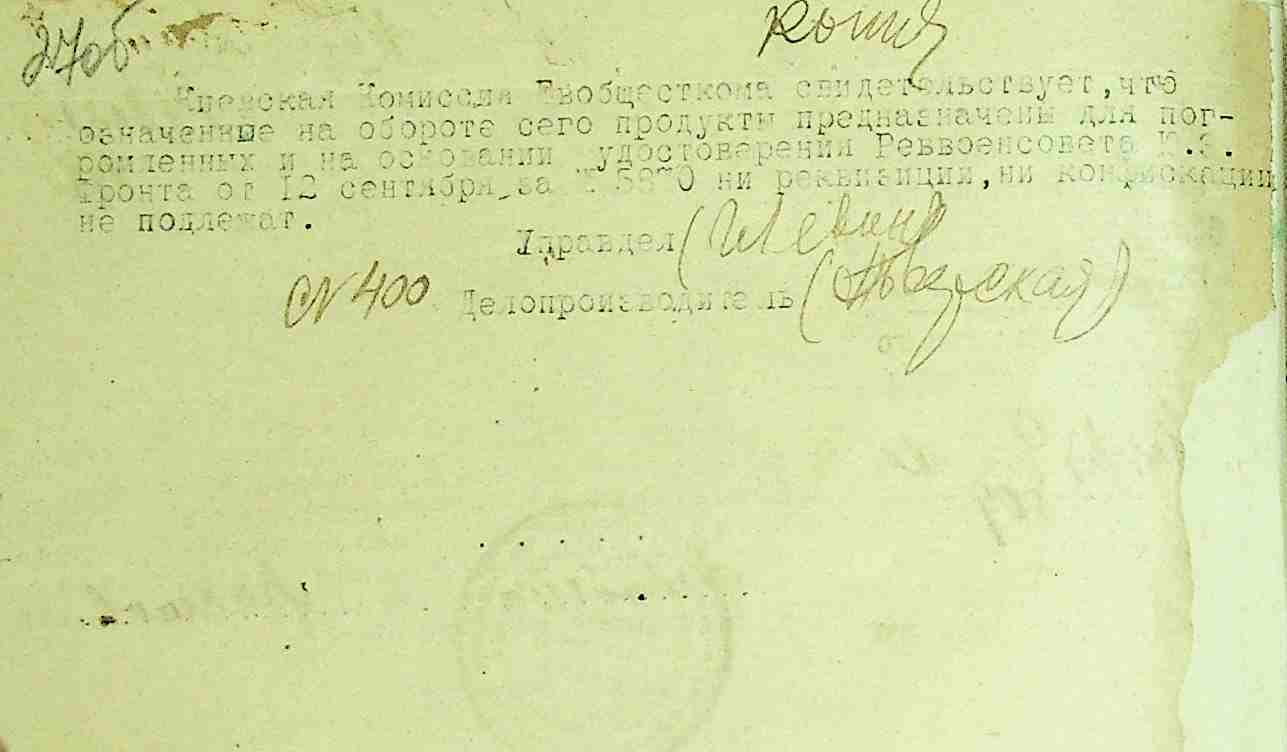 27об
копия
Киевская Комиссия Евобщесткома свидетельствует,что
означенные на обороте сего продукты предназначены для пог-
ромленных и на основании удостоверения Реввоенсовета Ю.З.
Фронта от 12 сентября за № 5870 ни реквизиции,ни конфискации
не подлежат.
Управдел (Левин)
№400 Делопроизводитель (